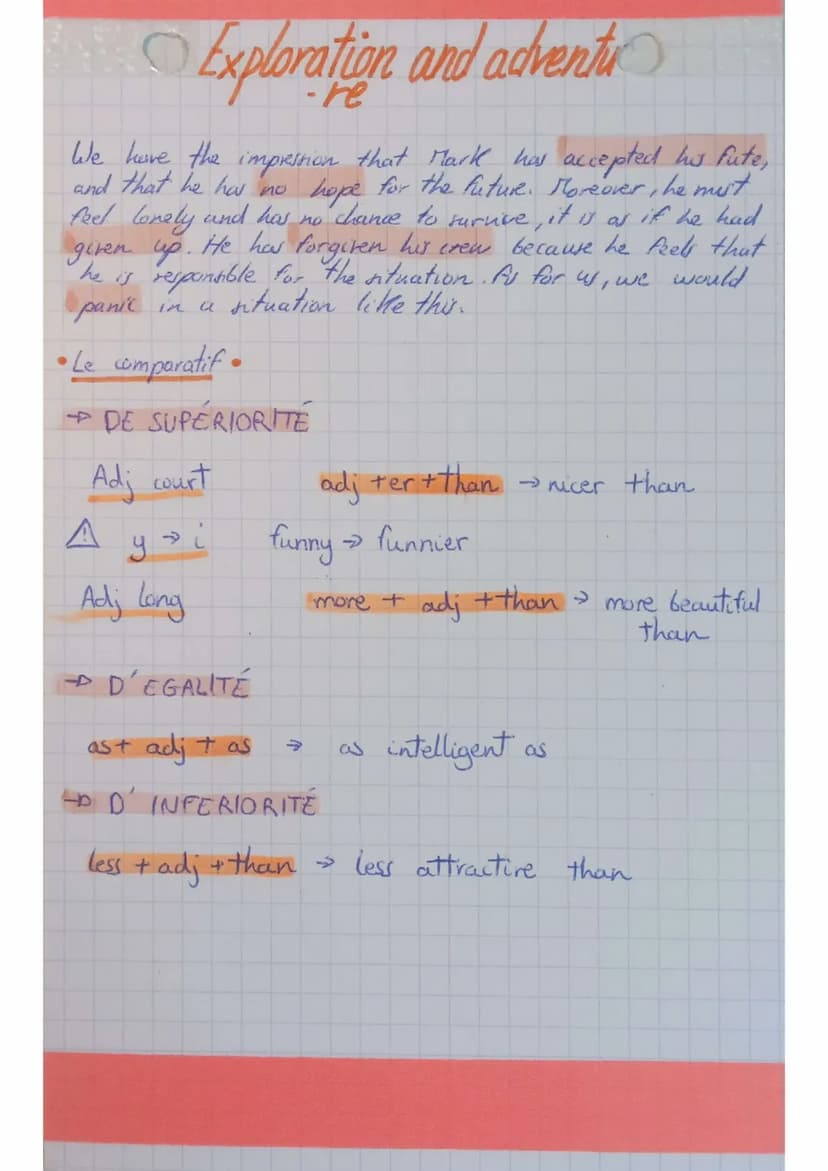 Exploration and adventu
-re
We have the impression that Mark has accepted his fate,
and that he has no hope for the future. Moreover, he must
feel lonely and has no chance to survive, it is as if he had
given up. He has forgiven his crew because he feels that
he is responsible for the situation. As for us, we would
panic in a situation like this.
• Le comparatif •
→ DE SUPÉRIORITÉ
Adj court adj + er + than → nicer than
⚠ y → i funny → funnier
Adj long more + adj + than → more beautiful
than
→ D'EGALITÉ
as + adj + as → as intelligent as
→ D'INFERIORITÉ
less + adj + than → less attractive than